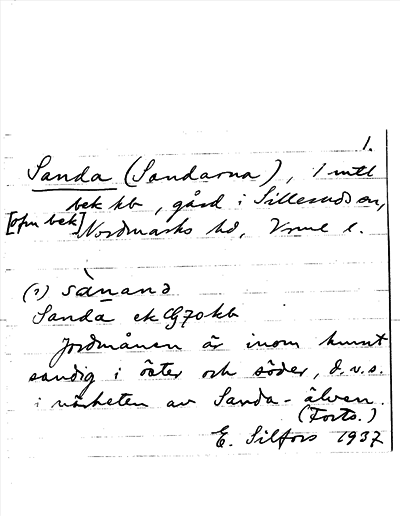 1.
Sanda (Sandarna), 1 mtl
bek kb, gård i Silleruds sn,
[ofm bek] Nordmarks hd, Vrml l.
(1) sànanə
Sanda ek G70 kb
Jordmånen är inom hmnt
sandig i öster och söder, d.v.s.
i närheten av Sanda-älven.
(Forts.)
E. Silfors 1937